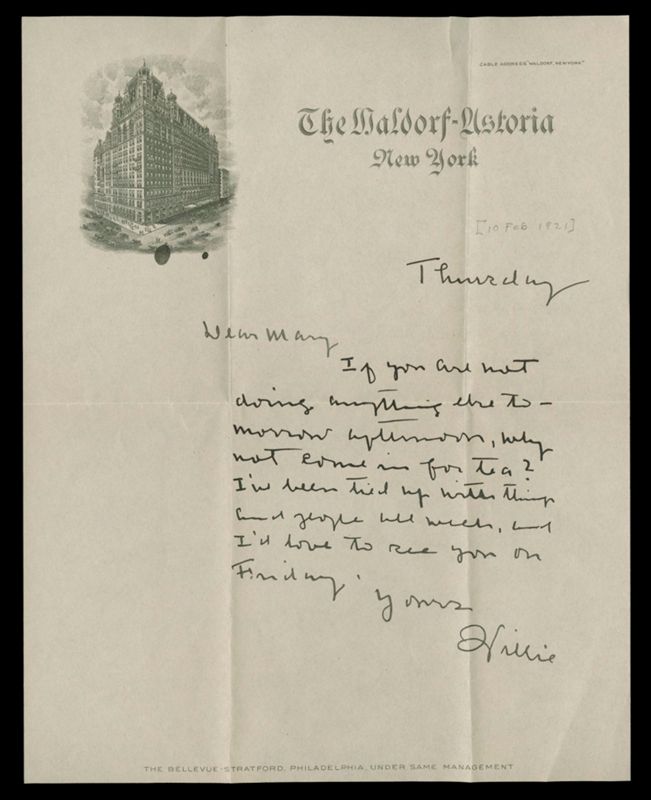 CABLE ADDRESS "WALDORF, NEWYORK"
The Waldorf-Astoria
New York
[10 Feb 1921]
Thursday
Dear Mary
If you are not
doing anything else to-
morrow afternoon, why
not come in for tea?
I've been tied up with things
and people all week, and
I'd love to see you on
Friday.
Yours
Willie
THE BELLEVUE-STRATFORD, PHILADELPHIA, UNDER SAME MANAGEMENT